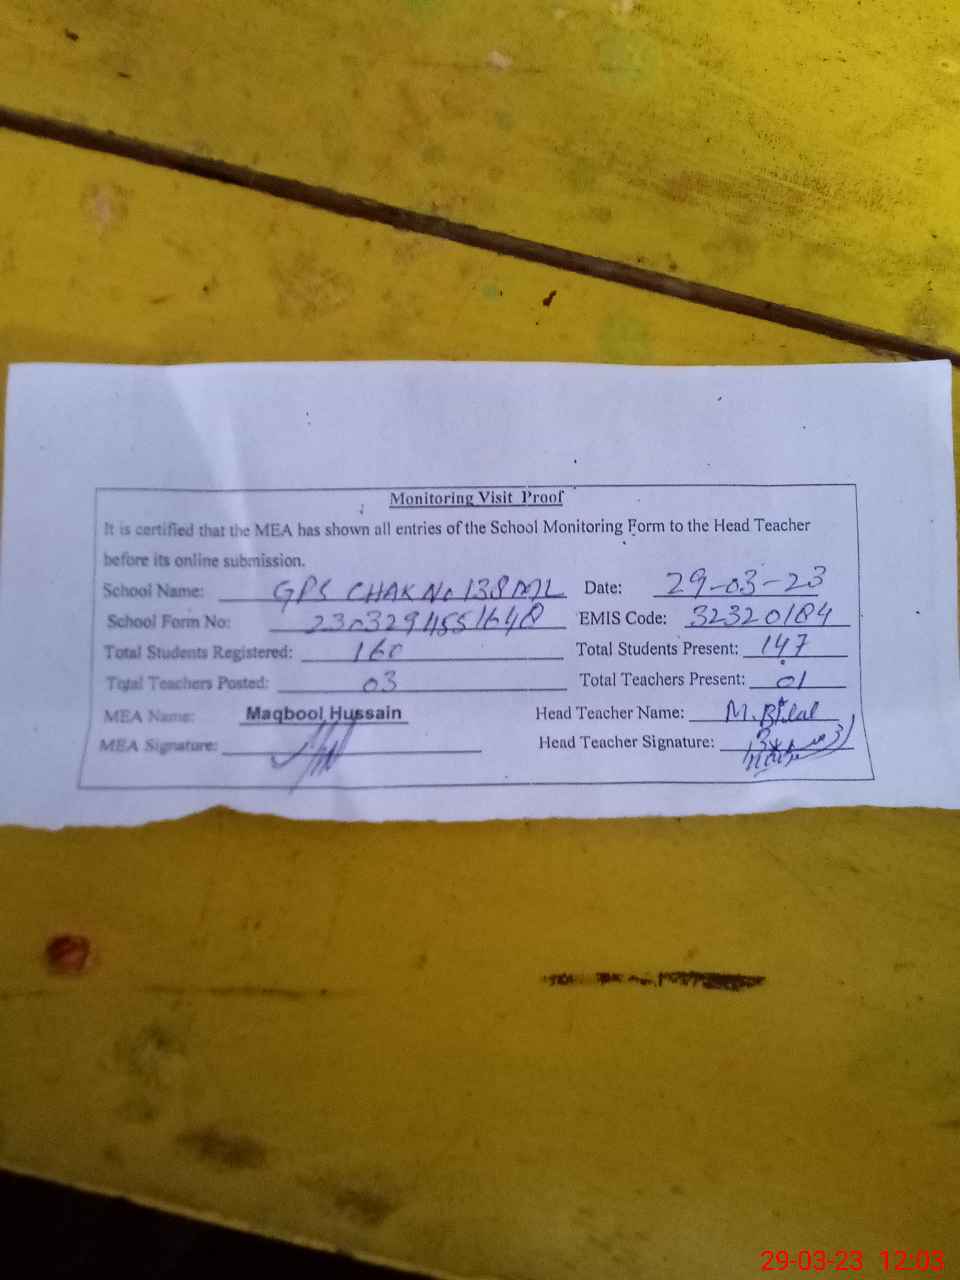 Monitoring Visit Proof
It is certified that the MEA has shown all entries of the School Monitoring Form to the Head Teacher
before its online submission.
School Name: GPS CHAK No 138 Date: 29-03-23
School Form No: EMIS Code: 32320184
Total Students Registered: 160 Total Students Present: 147
Total Teachers Posted: 03 Total Teachers Present: 01
MEA Name: Maqbool Hussain Head Teacher Name: M. Bilal
MEA Signature: Head Teacher Signature:
29-03-23 12:03